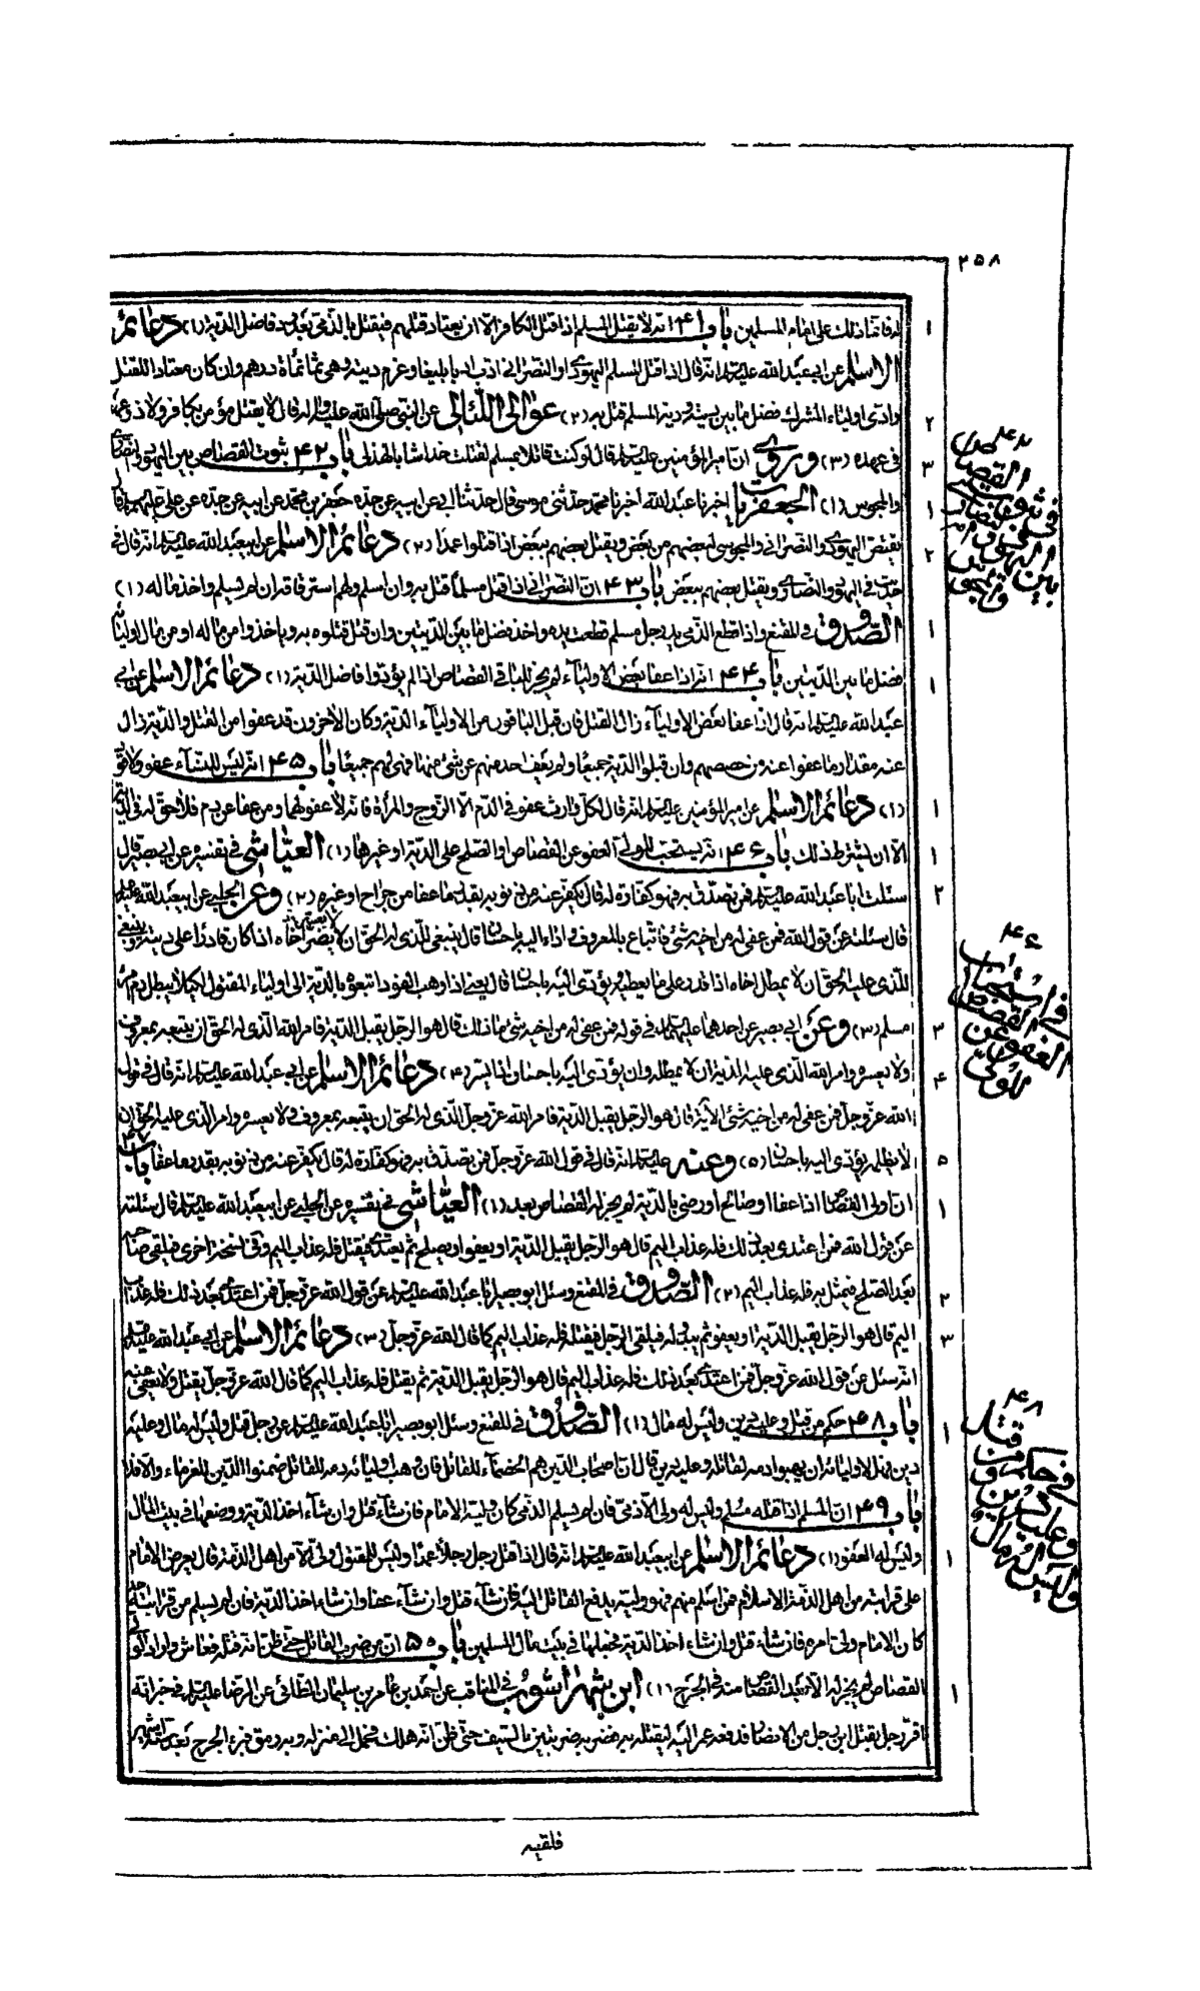 ٢٥٨
له فانما ذلك على امام المسلمين باب ٤١ انه لا يقتل المسلم اذا قتل الكافر الا ان يعتاد قتلهم فيقتل بالذمى بعد رد فاضل الدية (١) دعائم
الاسلام عن ابى عبد الله عليه السلام انه قال اذا قتل المسلم اليهودى او النصرانى ادب ادبا بليغا وغرم ديته وهى ثمانمأة درهم وان كان معتادا للقتل
وادى اولياء المشرك فضل ما بين ديته ودية المسلم قتل به (٢) عوالى اللئالى عن النبى صلى الله عليه واله قال لا يقتل مؤمن بكافر ولا ذو عهد
فى عهده (٣) وروى ان امير المؤمنين عليه السلام قال لو كنت قاتلا بمسلم لقتلت خداشا بالهذلى باب ٤٢ ثبوت القصاص بين اليهود والنصارى
والمجوس (١) الجعفريات اخبرنا عبد الله اخبرنا محمد حدثنى موسى قال حدثنا ابى عن ابيه عن جده جعفر بن محمد عن ابيه عن جده عن على عليهم السلام قال
يقتص اليهودى والنصرانى والمجوسى بعضهم من بعض ويقتل بعضهم ببعض اذا قتلوا عمدا (٢) دعائم الاسلام عن ابيعبد الله عليه السلام انه قال فى
حديث فى اليهود والنصارى ويقتل بعضهم ببعض باب ٤٣ ان النصرانى اذا قتل مسلما قتل به وان اسلم ولهم استرقاقه ان لم يسلم واخذ ماله (١)
الصدوق فى المقنع واذا قطع الذمى يد رجل مسلم قطعت يده واخذ فضل ما بين الديتين وان قتل قتلوه به وياخذوا من ماله او من مال اوليائه
فضل ما بين الديتين باب ٤٤ انه اذا عفا بعض الاولياء لم يجز للباقى القصاص اذا لم يؤدوا فاضل الدية (١) دعائم الاسلام عن ابى
عبد الله عليه السلام انه قال اذا عفا بعض الاولياء زال القتل فان قبل الباقون من الاولياء الدية وكان الآخرون قد عفوا من القتل والدية زال
عنه مقدار ما عفوا عنه من حصصهم وان قبلوا الدية جميعا ولم يعف احد منهم عن شئ منها فهى لهم جميعا باب ٤٥ انه ليس للنساء عفو ولا قود
(١) دعائم الاسلام عن امير المؤمنين عليه السلام انه قال لكل وارث عفو فى الدم الا الزوج والمرأة فانه لا عفو لهما ومن عفا عن دم فلا حق له فى الدية
الا ان يشترط ذلك باب ٤٦ انه يستحب للولى العفو عن القصاص او الصلح على الدية او غيرها (١) العياشى فى تفسيره عن ابى بصير قال
سئلت ابا عبد الله عليه السلام فمن تصدق به فهو كفارة له قال يكفر عنه من ذنوبه بقدر ما عفا من جراح او غيره (٢) وعن الحلبى عن ابيعبد الله عليه السلام
قال سئلته عن قول الله فمن عفى له من اخيه شئ فاتباع بالمعروف واداء اليه باحسان قال ينبغى للذى له الحق ان لا يعسر اخاه اذا كان قادرا على ديته وينبغى
للذى عليه الحق ان لا يمطل اخاه اذا قدر على ما يعطيه ويؤدى اليه باحسان قال يعنى اذا وهب القود اتبعوه بالدية الى اولياء المقتول لكيلا يبطل دم امرئ
مسلم (٣) وعن ابى بصير عن احدهما عليهما السلام فى قوله فمن عفى له من اخيه شئ ما ذلك قال هو الرجل يقبل الدية فامر الله الذى له الحق ان يتبعه بمعروف
ولا يعسره وامر الله الذى عليه الدية ان لا يمطله وان يؤدى اليه باحسان اذا ايسر (٤) دعائم الاسلام عن ابى عبد الله عليه السلام انه قال فى قول
الله عز وجل فمن عفى له من اخيه شئ الآية قال هو الرجل يقبل الدية فامر الله عز وجل الذى له الحق ان يتبعه بمعروف ولا يعسره وامر الذى عليه الحق ان
لا يظلمه ويؤدى اليه باحسان (٥) وعنه عليه السلام انه قال فى قول الله عز وجل فمن تصدق به فهو كفارة له قال يكفر عنه من ذنوبه بقدر ما عفا باب ٤٧
ان ولى القصاص اذا عفا او صالح او رضى بالدية لم يجز له القصاص بعد (١) العياشى فى تفسيره عن الحلبى عن ابيعبد الله عليه السلام قال سئلته
عن قول الله فمن اعتدى بعد ذلك فله عذاب اليم قال هو الرجل يقبل الدية او يعفو او يصالح ثم يعتدى فيقتل فله عذاب اليم وفى نسخة اخرى فيلقى صاحبه
بعد الصلح فيمثل به فله عذاب اليم (٢) الصدوق فى المقنع وسئل ابو بصير ابا عبد الله عليه السلام عن قول الله عز وجل فمن اعتدى بعد ذلك فله عذاب
اليم قال هو الرجل يقبل الدية او يعفو ثم يبدو له فيلقى الرجل فيقتله فله عذاب اليم كما قال الله عز وجل (٣) دعائم الاسلام عن ابى عبد الله عليه السلام
انه سئل عن قول الله عز وجل فمن اعتدى بعد ذلك فله عذاب اليم قال هو الرجل يقبل الدية ثم يقتل فله عذاب اليم كما قال الله عز وجل يقتل ولا يعفى عنه
باب ٤٨ حكم من قتل وعليه دين وليس له مال (١) الصدوق فى المقنع وسئل ابو بصير ابا عبد الله عليه السلام عن رجل قتل وليس له مال وعليه
دين فهل لاوليائه ان يهبوا دمه لقاتله وعليه دين قال ان اصحاب الدين هم الخصماء للقاتل فان وهب اوليائه دمه للقاتل ضمنوا الدين للغرماء والا فلا
باب ٤٩ ان المسلم اذا قتله مسلم وليس له ولى الا ذمى فان لم يسلم الذمى كان وليه الامام فان شاء قتل وان شاء اخذ الدية ووضعها فى بيت المال
وليس له العفو (١) دعائم الاسلام عن ابيعبد الله عليه السلام انه قال اذا قتل رجل رجلا عمدا وليس للمقتول ولى الا من اهل الذمة قال يعرض الامام
على قرابته من اهل الذمة الاسلام فمن اسلم منهم فهو وليه يدفع القاتل اليه فان شاء قتل وان شاء عفا وان شاء اخذ الدية فان لم يسلم من قرابته احد
كان الامام ولى امره فان شاء قتل وان شاء اخذ الدية فجعلها فى بيت مال المسلمين باب ٥٠ ان من ضرب القاتل حتى ظن انه قتله فعاش واراد الولى
القصاص لم يجز له الا بعد القصاص منه فى الجرح (١) ابن شهر اشوب فى المناقب عن احمد بن عامر بن سليمان الطائى عن الرضا عليه السلام فى خبر انه
اقر رجل بقتل ابن رجل من الانصار فدفعه عمر اليه ليقتله به فضربه ضربتين بالسيف حتى ظن انه هلك فحمل الى منزله وبه رمق فبرء الجرح بعد ستة اشهر
فلقيه
٤٢
فى ثبوت القصاص
بين اليهود والنصارى
والمجوس
٤٦
فى استحباب
العفو عن القصاص
للولى
٤٨
فى حكم من قتل
وعليه دين
وليس له مال